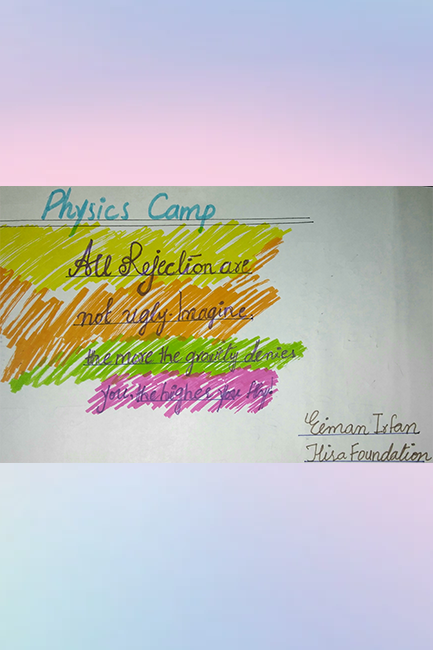 Physics Camp
All Rejection are
not ugly. Imagine,
the more the gravity denies
you, the higher you fly!
Eiman Irfan
Hisa Foundation